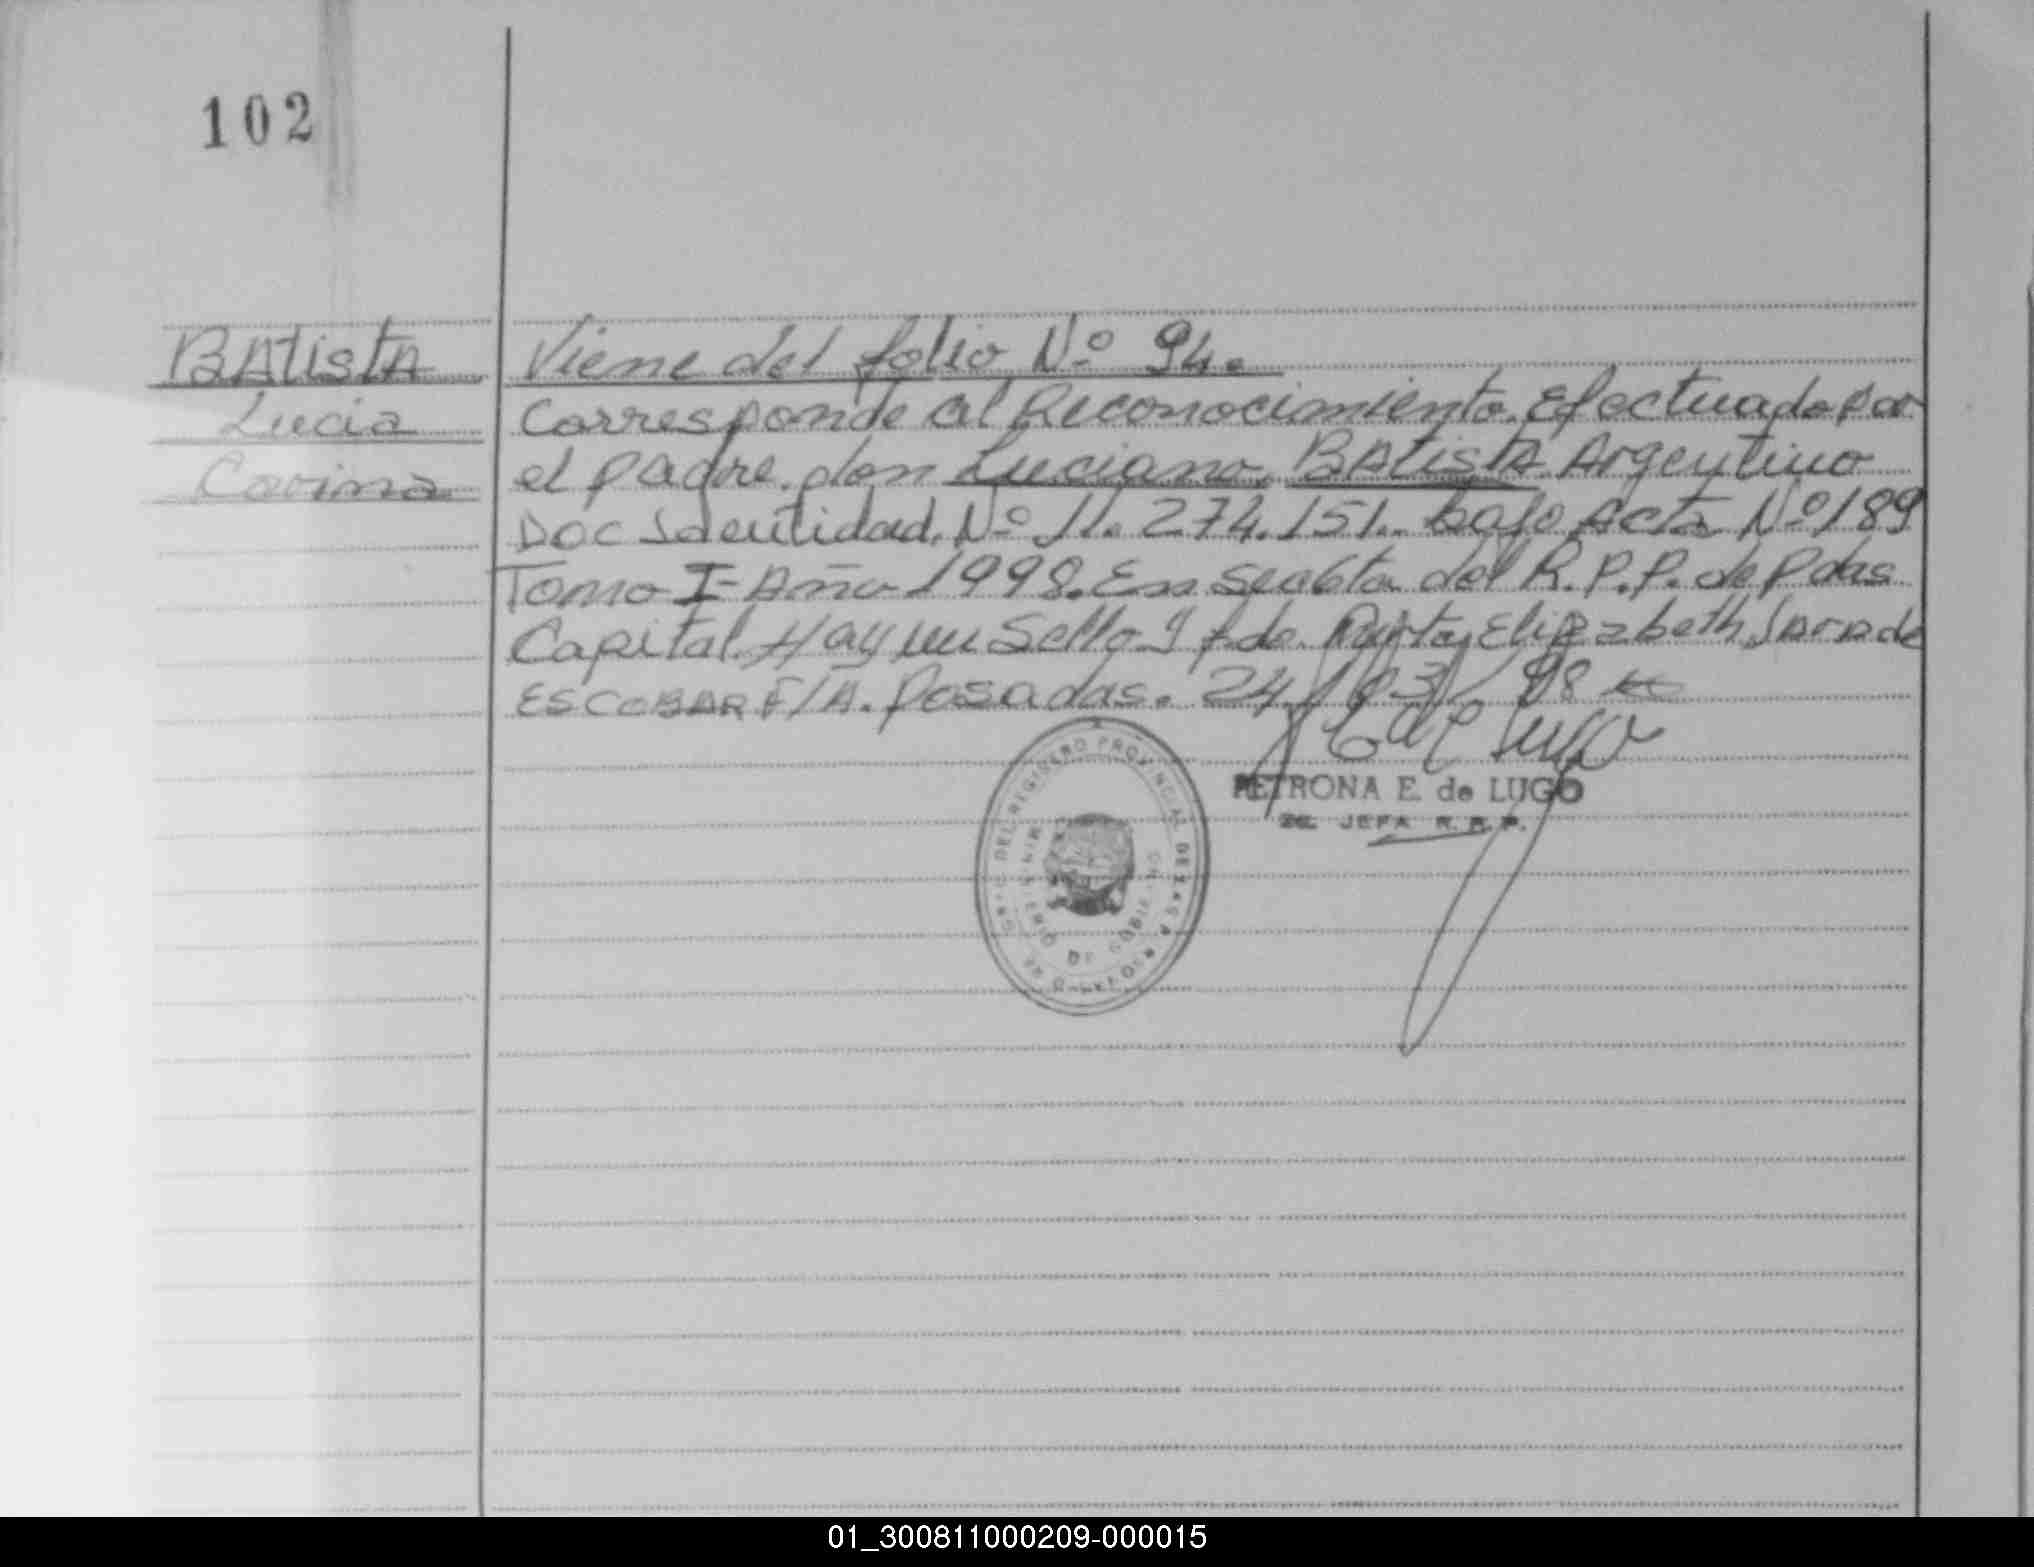 102
BAtistA
Lucia
Corina
Viene del folio Nº 94.
Corresponde al Reconocimiento. Efectuado por
el padre. don Luciano. BAtistA Argentino
Doc Identidad. Nº 11. 274. 151.. bajo Acta Nº 189
Tomo I- Año 1998. En Secc 6ta del R. P. P. de Pdas
Capital. Hay un Sello y f. de. Elizabeth de
ESCOBAR F/A. Posadas. 24/03/98
PETRONA E. de LUGO
JEFA R. R. P.
DEL REGISTRO PROVINCIAL DE LAS P
MINISTERIO DE GOBIERNO
01_300811000209-000015